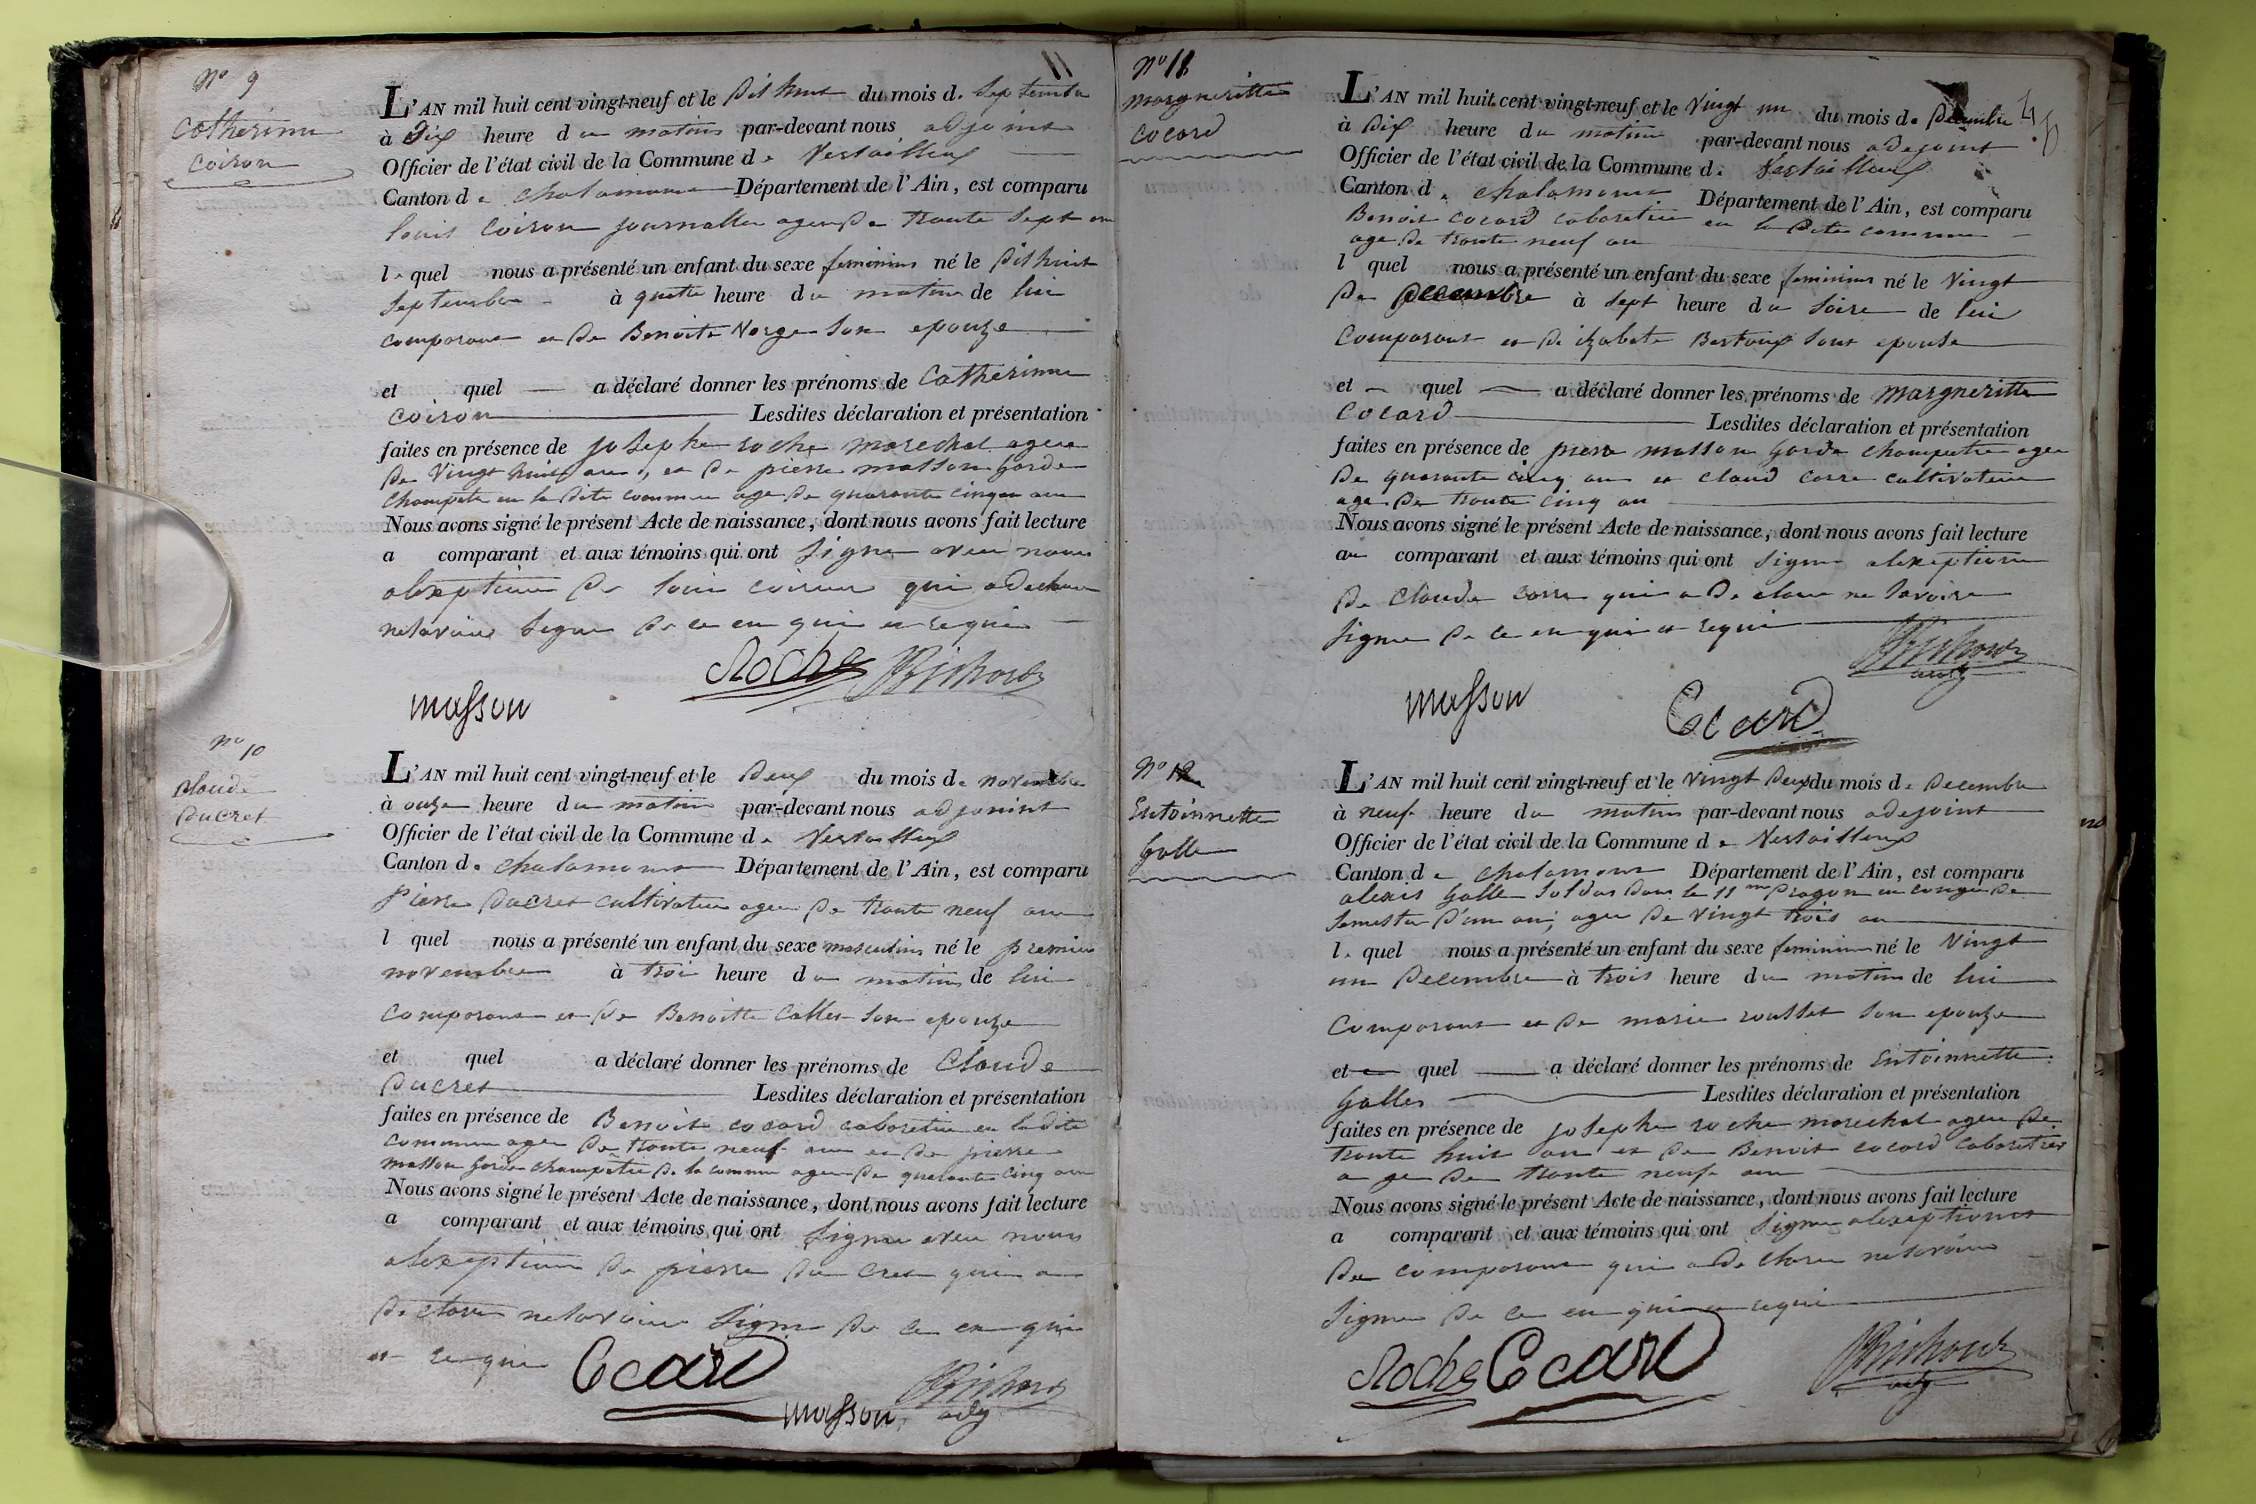 No 9
Catherinne
Coiron
11
L'AN mil huit cent vingt-neuf et le Dit huit du mois d. Septembre
à Dix heure du matin par-devant nous adjoint
Officier de l'état civil de la Commune de Versailleux
Canton de chalamont Département de l'Ain, est comparu
louis Coiron journallier agee De trante Sept an
le quel nous a présenté un enfant du sexe feminin né le Dit huit
Septembre à quatre heure du matin de lui
comparant et De Benoite Verge Son epouze
et quel a déclaré donner les prénoms de Catherinne
Coiron Lesdites déclaration et présentation
faites en présence de joSephe roche marechal agee
De Vingt huit an, et De pierre masson garde
champetre en la Dite commune age De quarante cinq an
Nous avons signé le présent Acte de naissance, dont nous avons fait lecture
a comparant et aux témoins qui ont Signe avec nous
alexeption De louis coiron qui a declare
ne Savoire Signe De ce en qui et requi
Roche Brichon
masson
No 10
claude
Ducret
L'AN mil huit cent vingt-neuf et le Deux du mois de novembre
à onze heure du matin par-devant nous adjouint
Officier de l'état civil de la Commune de Versailleux
Canton de chalamont Département de l'Ain, est comparu
Pierre Ducret cultivateur agee De trante neuf an
l quel nous a présenté un enfant du sexe masculin né le premier
novembre à troi heure du matin de lui
comparant et De Benoitte Collet Son epouze
et quel a déclaré donner les prénoms de Claude
Ducret Lesdites déclaration et présentation
faites en présence de Benoit cocard cabaretier en ladite
commune agee De trante neuf an et De pierre
masson garde champetre De la commune agee De quarante cinq an
Nous avons signé le présent Acte de naissance, dont nous avons fait lecture
a comparant et aux témoins qui ont Signe avec nous
alexeption De pierre Du cret qui a
De clare ne Savoire Signe De ce en qui
et requi
Cocard
masson Brichon adj
No 11
margueritte
cocard
L'AN mil huit cent vingt-neuf et le Vingt un du mois de Decembre
à Dix heure du matin par-devant nous adejoint
Officier de l'état civil de la Commune de Versailleux
Canton de chalamont Département de l'Ain, est comparu
Benoit cocard cabaretier en la Dite commune
age De trante neuf an
l quel nous a présenté un enfant du sexe feminin né le Vingt
De Decembre à Sept heure du Soire de lui
Comparant et De izabete Bertoux Sont epouse
et quel a déclaré donner les prénoms de margueritte
Cocard Lesdites déclaration et présentation
faites en présence de pierre masson garde champetre agee
De quarante cinq an et claud corre cultivateur
age De trante cinq an
Nous avons signé le présent Acte de naissance, dont nous avons fait lecture
au comparant et aux témoins qui ont Signe alexeption
De claude corre qui a De clare ne Savoire
Signe De ce en qui et requi
Brichon adj
masson Cocard
No 12
Entoinnette
Galle
L'AN mil huit cent vingt-neuf et le Vingt Deux du mois de Decembre
à neuf heure du matin par-devant nous adejoint
Officier de l'état civil de la Commune de Versailleux
Canton de chalamont Département de l'Ain, est comparu
alexis Galle Soldat Dans le 11me Dragon en conger De
Semestre D'un an, agee De Vingt trois an
le quel nous a présenté un enfant du sexe feminin né le Vingt
un Decembre à trois heure du matin de lui
Comparant et De marie rousset Son epouze
et quel a déclaré donner les prénoms de Entoinnette
Galles Lesdites déclaration et présentation
faites en présence de joSephe roche marechal agee De
trante huit an et De Benoit cocard cabaretier
a ge De trante neuf an
Nous avons signé le présent Acte de naissance, dont nous avons fait lecture
a comparant et aux témoins qui ont Signe alexeption
Du comparant qui a De clare ne Savoire
Signe De ce en qui et requi
Roche Cocard Brichon adj